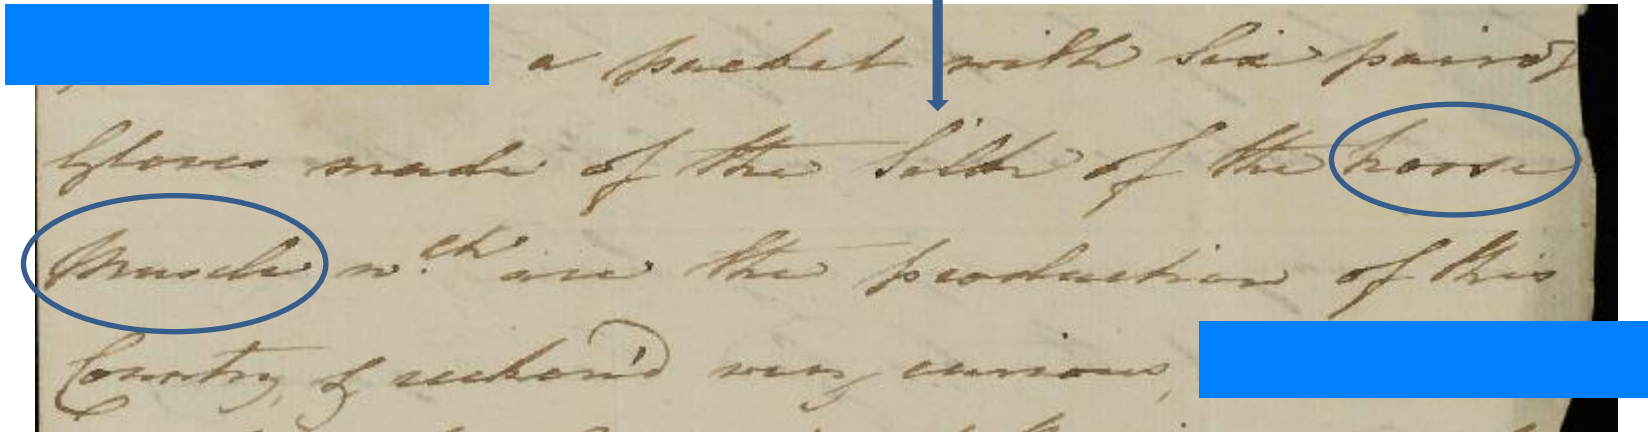 a packet with six pair of
Gloves made of the Silk of the horse
Muscle w.ch are the production of this
Country, & reckon'd very curious,